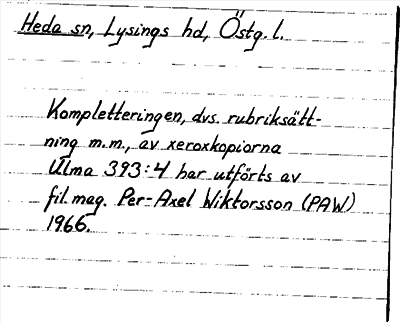 Heda sn, Lysings hd, Östg. l.
Kompletteringen, dvs. rubriksätt-
ning m.m., av xeroxkopiorna
Ulma 393:4 har utförts av
fil. mag. Per-Axel Wiktorsson (PAW)
1966.